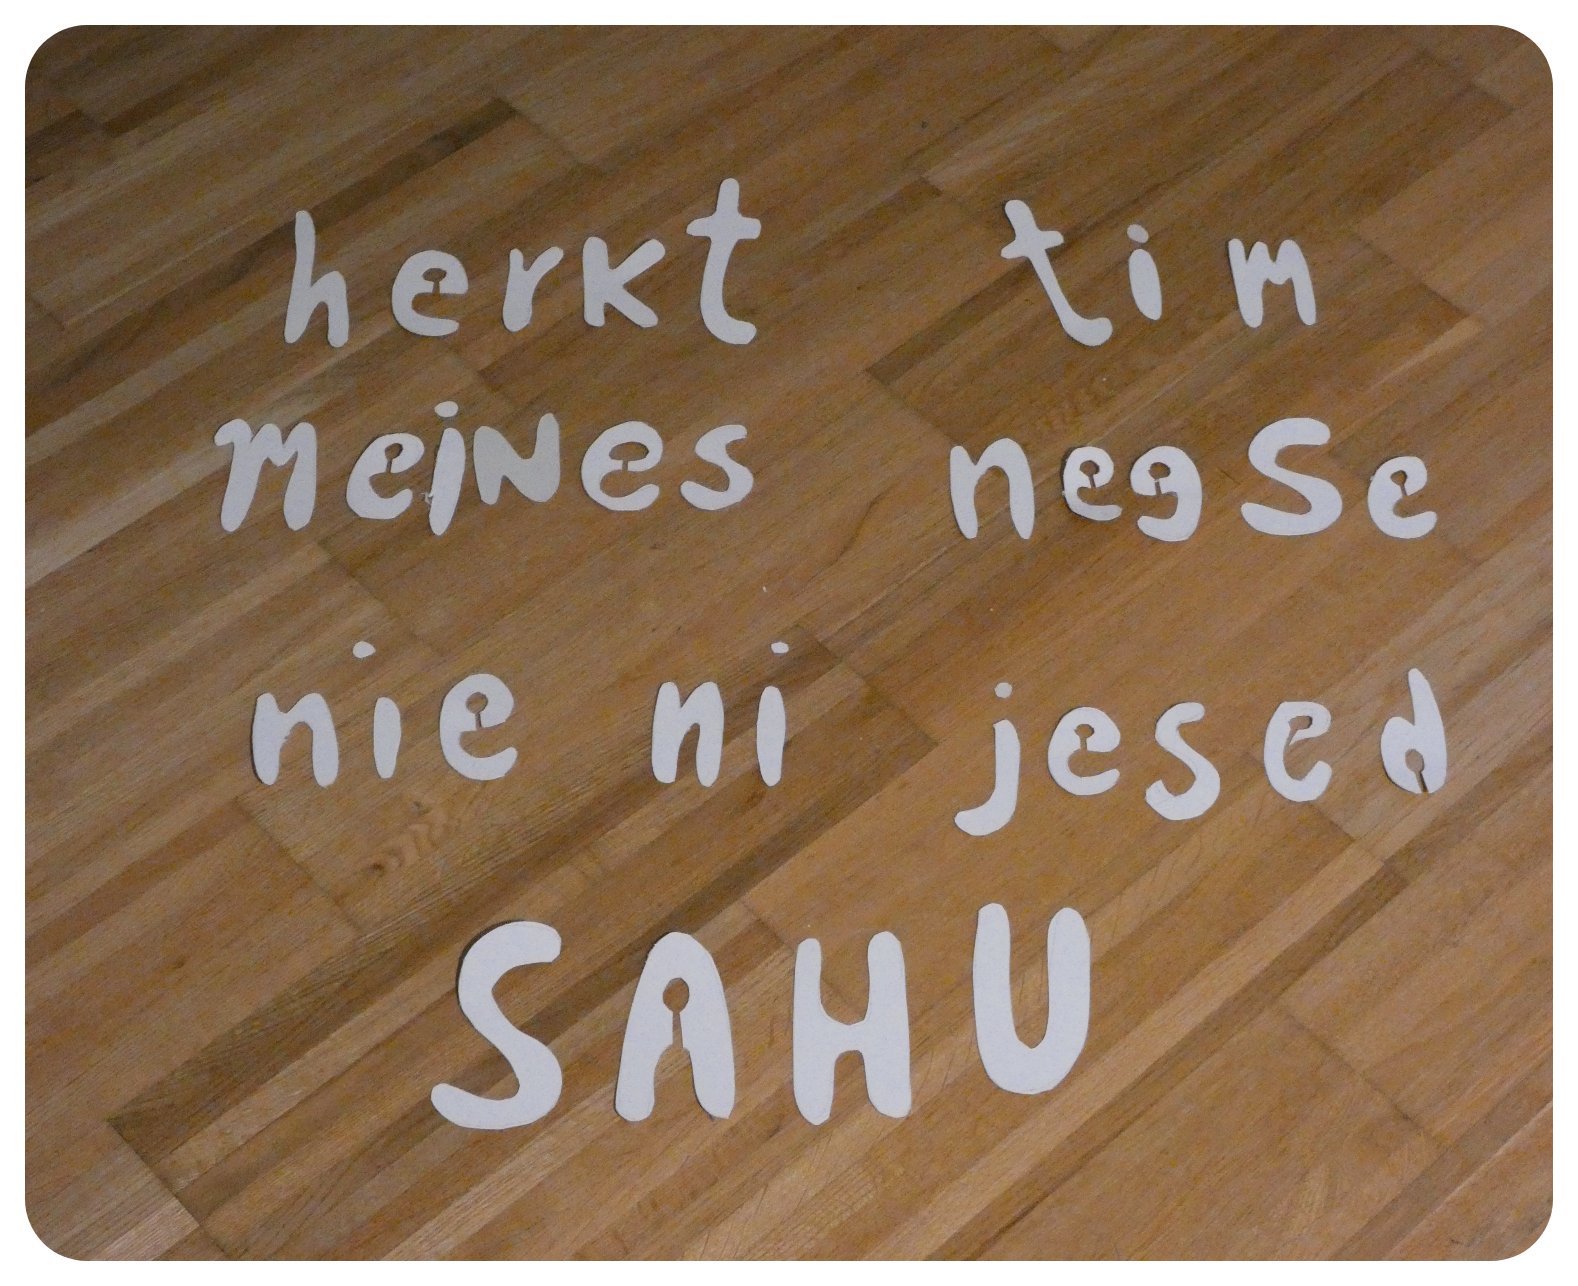 herkt tim
meiNes negse
nie ni jesed
SAHU